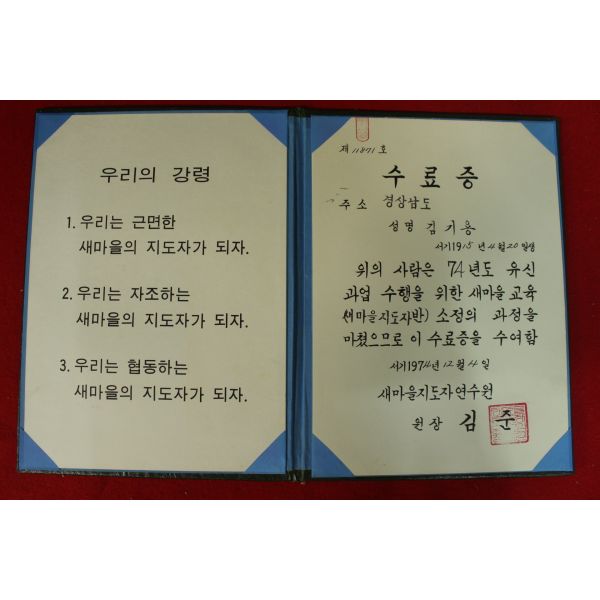 우리의 강령
1. 우리는 근면한
새마을의 지도자가 되자.
2. 우리는 자조하는
새마을의 지도자가 되자.
3. 우리는 협동하는
새마을의 지도자가 되자.
제 11871 호
수료증
주소 경상남도
성명 김기용
서기1915년4월20일생
위의 사람은 74년도 유신
과업 수행을 위한 새마을 교육
(새마을지도자반) 소정의 과정을
마쳤으므로 이 수료증을 수여함
서기1974년12월4일
새마을지도자연수원
원장 김준